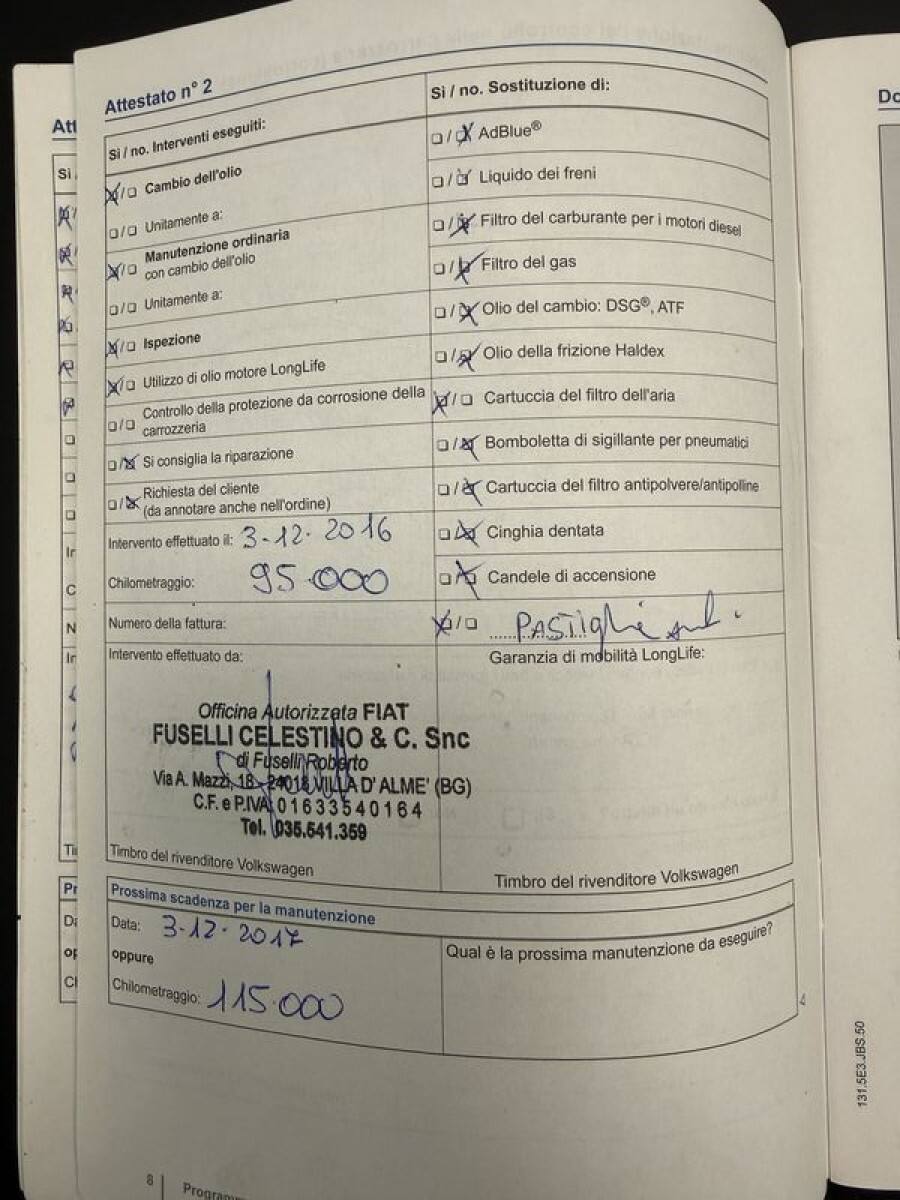 Attestato n° 2
Sì / no. Interventi eseguiti:
Cambio dell'olio
Unitamente a:
Manutenzione ordinaria
con cambio dell'olio
Unitamente a:
Ispezione
Utilizzo di olio motore LongLife
Controllo della protezione da corrosione della
carrozzeria
Si consiglia la riparazione
Richiesta del cliente
(da annotare anche nell'ordine)
Intervento effettuato il: 3-12-2016
Chilometraggio: 95.000
Numero della fattura:
Intervento effettuato da:
Officina Autorizzata FIAT
FUSELLI CELESTINO & C. Snc
di Fuselli Roberto
Via A. Mazzi, 18 - 24018 VILLA D'ALME' (BG)
C.F. e P.IVA 01633540164
Tel. 035.541.359
Timbro del rivenditore Volkswagen
Sì / no. Sostituzione di:
AdBlue®
Liquido dei freni
Filtro del carburante per i motori diesel
Filtro del gas
Olio del cambio: DSG®, ATF
Olio della frizione Haldex
Cartuccia del filtro dell'aria
Bomboletta di sigillante per pneumatici
Cartuccia del filtro antipolvere/antipolline
Cinghia dentata
Candele di accensione
PASTIGLIE
Garanzia di mobilità LongLife:
Timbro del rivenditore Volkswagen
Prossima scadenza per la manutenzione
Data: 3-12-2017
oppure
Chilometraggio: 115.000
Qual è la prossima manutenzione da eseguire?
131.5E3.JBS.50
8